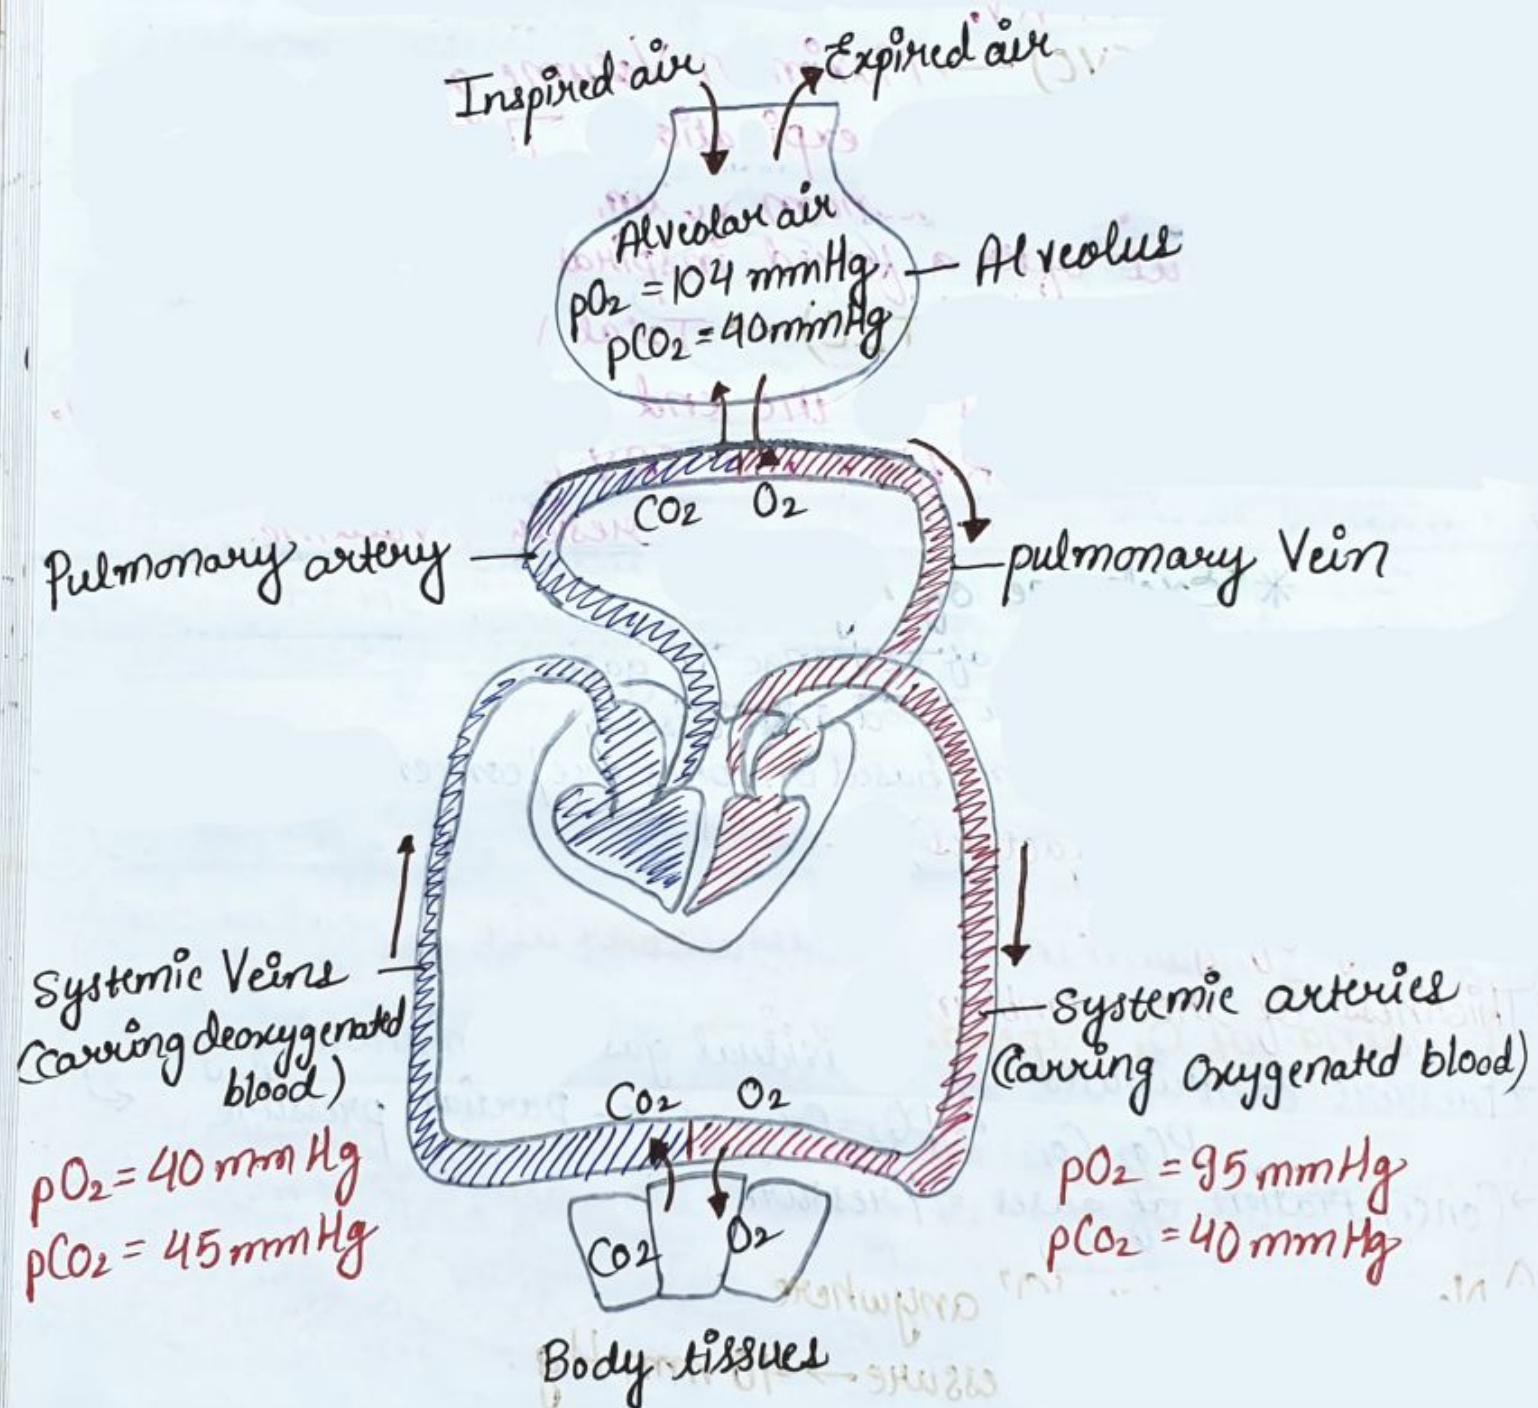 Inspired air
Expired air
Alveolar air
pO2 = 104 mmHg
pCO2 = 40mmHg
Alveolus
CO2 O2
Pulmonary artery
pulmonary Vein
Systemic Veins
(Carring deoxygenated
blood)
pO2 = 40 mmHg
pCO2 = 45 mmHg
Systemic arteries
(Carring Oxygenated blood)
pO2 = 95 mmHg
pCO2 = 40 mmHg
CO2 O2
CO2 O2
Body tissues